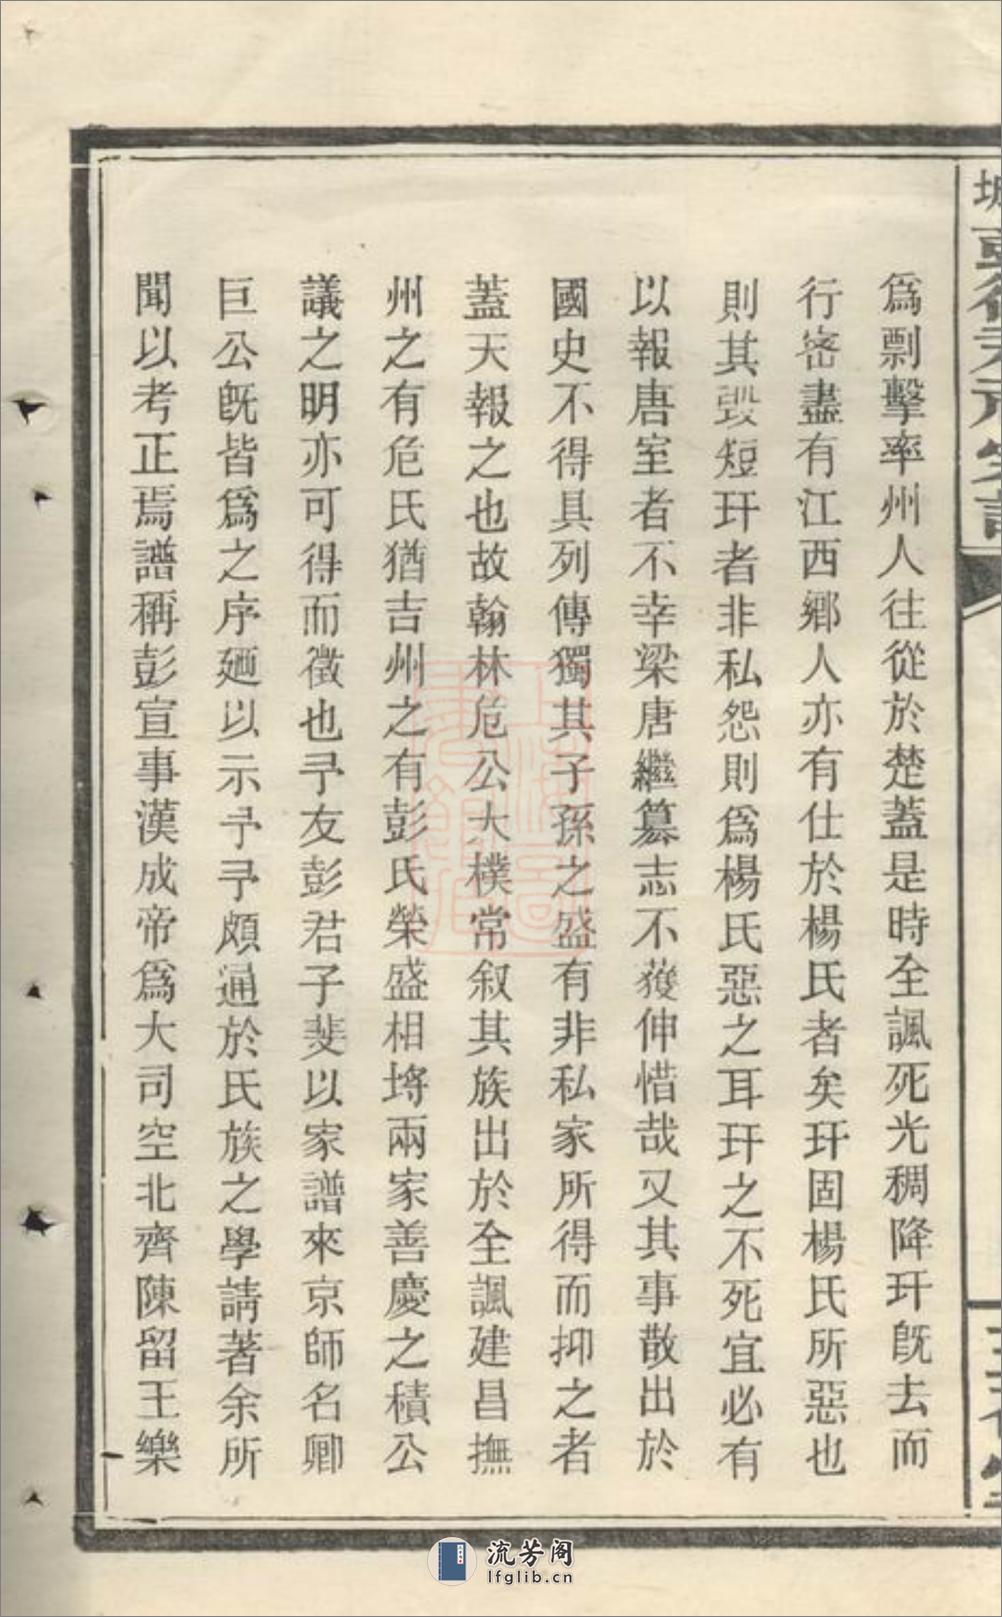 爲剽擊率州人往從於楚蓋是時全諷死光稠降玕旣去而
行密盡有江西鄉人亦有仕於楊氏者矣玕固楊氏所惡也
則其毀短玕者非私怨則爲楊氏惡之耳玕之不死宜必有
以報唐室者不幸梁唐繼篡志不獲伸惜哉又其事散出於
國史不得具列傳獨其子孫之盛有非私家所得而抑之者
蓋天報之也故翰林危公大樸常叙其族出於全諷建昌撫
州之有危氏猶吉州之有彭氏榮盛相埒兩家善慶之積公
議之明亦可得而徵也予友彭君子斐以家譜來京師名卿
巨公旣皆爲之序廼以示予予頗通於氏族之學請著余所
聞以考正焉譜稱彭宣事漢成帝爲大司空北齊陳留王樂
流芳阁
lfglib.cn